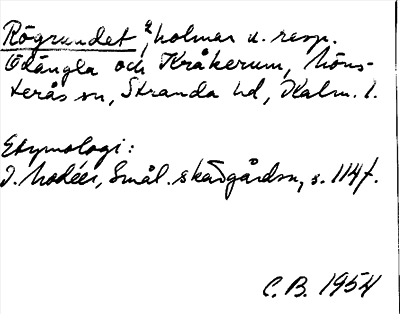 Rögrundet, 2 holmar u. resp.
Ödängla och Kråkerum, Möns-
terås sn, Stranda hd, Kalm. l.
Etymologi:
I. Modéer, Smål. skärgårdsn, s. 114f.
C. B. 1954